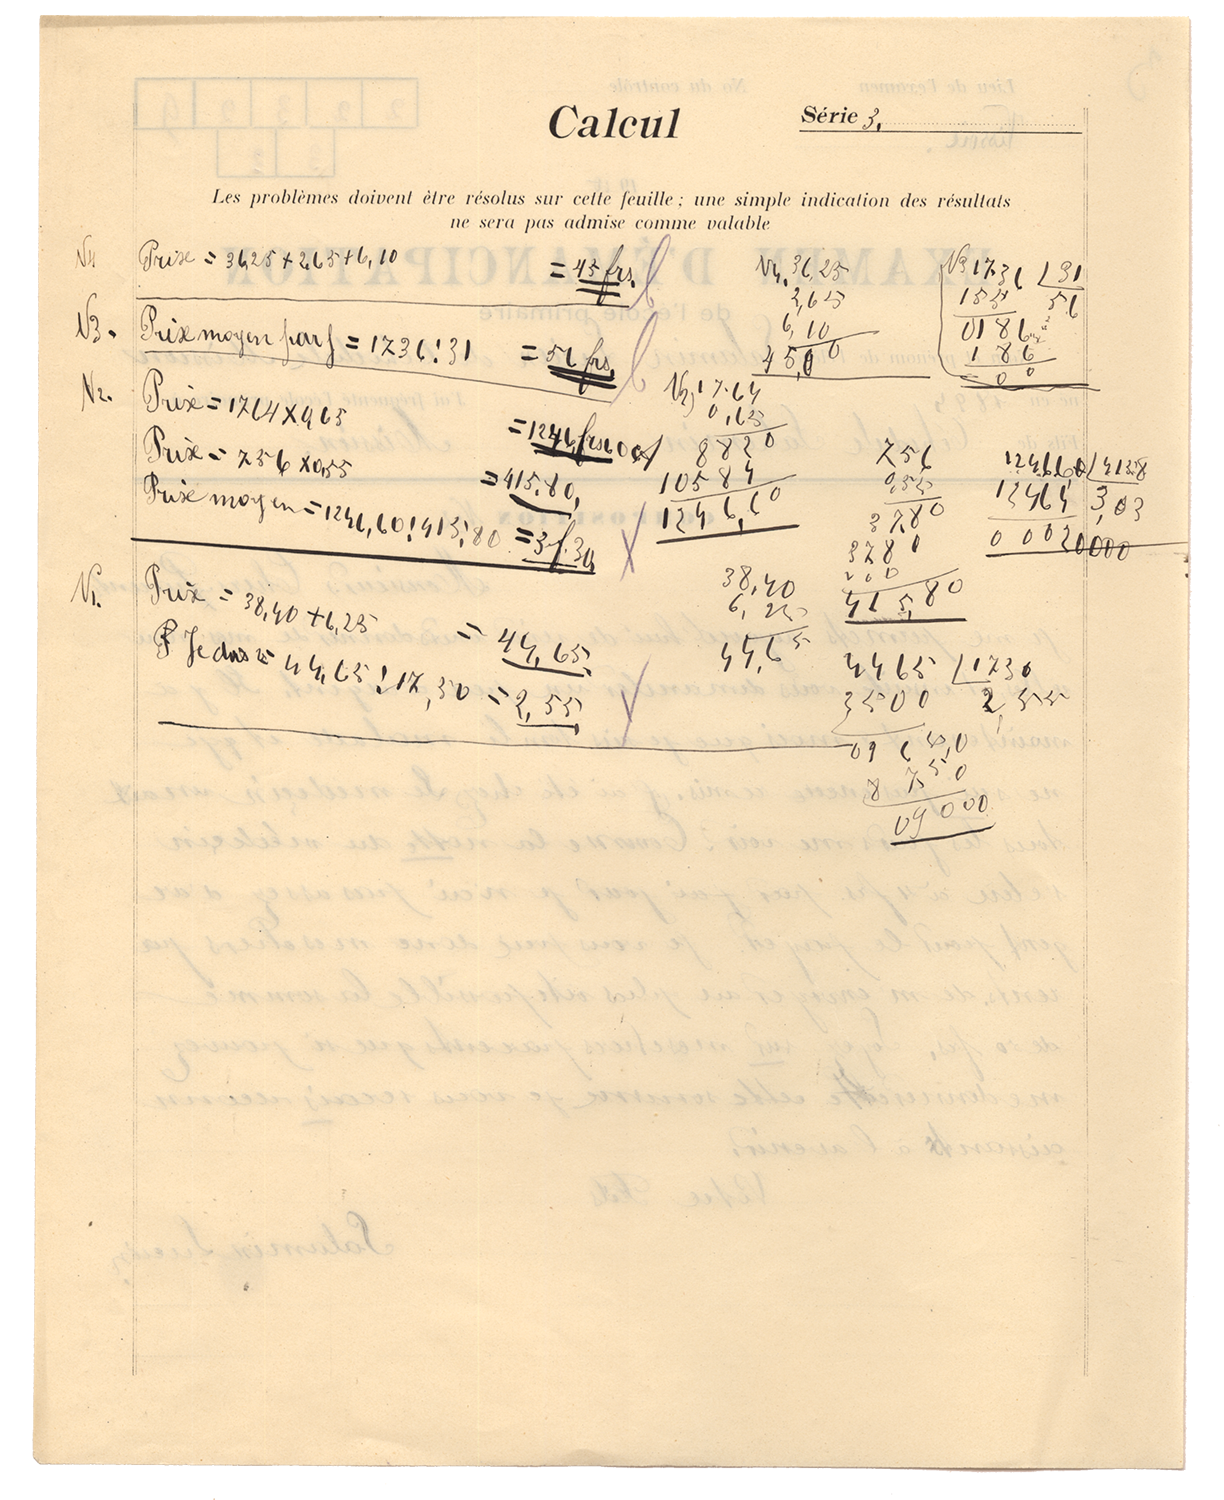 Calcul
Série 3.
Les problèmes doivent être résolus sur cette feuille ; une simple indication des résultats
ne sera pas admise comme valable
N4 Prix = 36,25 + 2,65 + 6,10 = 45 frs. b
N3. Prix moyen par j = 1736 : 31 = 56 frs. b
N2. Prix = 1764 X 0,65 = 1246, frs 60
Prix = 756 X 0,55 = 415,80,
Prix moyen = 1246,60 : 415,80 = 3 f. 30,
N1. Prix = 38,40 + 6,25 = 44,65,
P je dois = 44,65 : 17,50 = 2,55
N4. 36,25
2,65
6,10
45,00
N3 1736 | 31
155 56
0186
186
00
N2) 1764
0,65
8820
10584
1246,60
756
0,55
3780
3780
000
415,80
12466,0 | 4158
12464 3,03
0 0020000
38,40
6,25
44,65
4465 | 1730
3500 2,55
09650
8750
09000